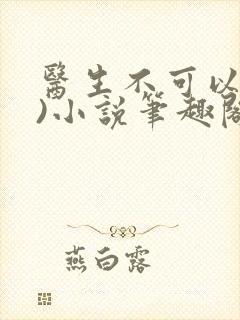 醫生不可以
)小說筆趣閣
燕白露